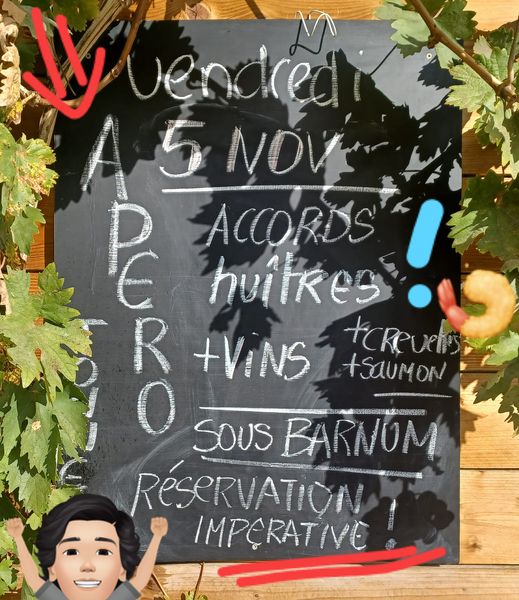 vendredi
5 NOV
APERO
ACCORDS
huîtres
+VINS
+CREVETTES
+SAUMON
SOUS BARNUM
RÉSERVATION
IMPERATIVE !